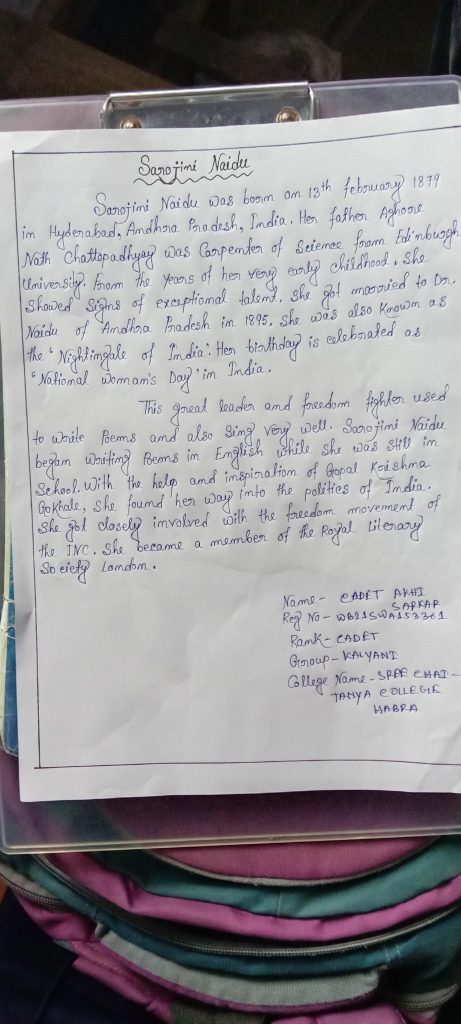 Sarojini Naidu
Sarojini Naidu was born on 13th february 1879
in Hyderabad, Andhra Pradesh, India. Her father Aghore
Nath Chattopadhyay was Carpenter of Science from Edinburgh
University. From the years of her very early childhood. She
Showed Signs of exceptional talent. She got married to Dr.
Naidu of Andhra Pradesh in 1895. She was also Known as
the "Nightingale of India". Her birthday is celebrated as
"National woman's Day" in India.
This great leader and freedom fighter used
to write Poems and also Sing very well. Sarojini Naidu
began writing Poems in English while She was Still in
School. With the help and inspiration of Gopal Krishna
Gokhale, She found her way into the politics of India.
She got closely involved with the freedom movement of
the INC. She became a member of the Royal Literary
Society London.
Name - CADET AKHI
SARKAR
Reg No - WB21SWA153361
Rank - CADET
Group - KALYANI
College Name - SREE CHAI-
TANYA COLLEGE
HABRA